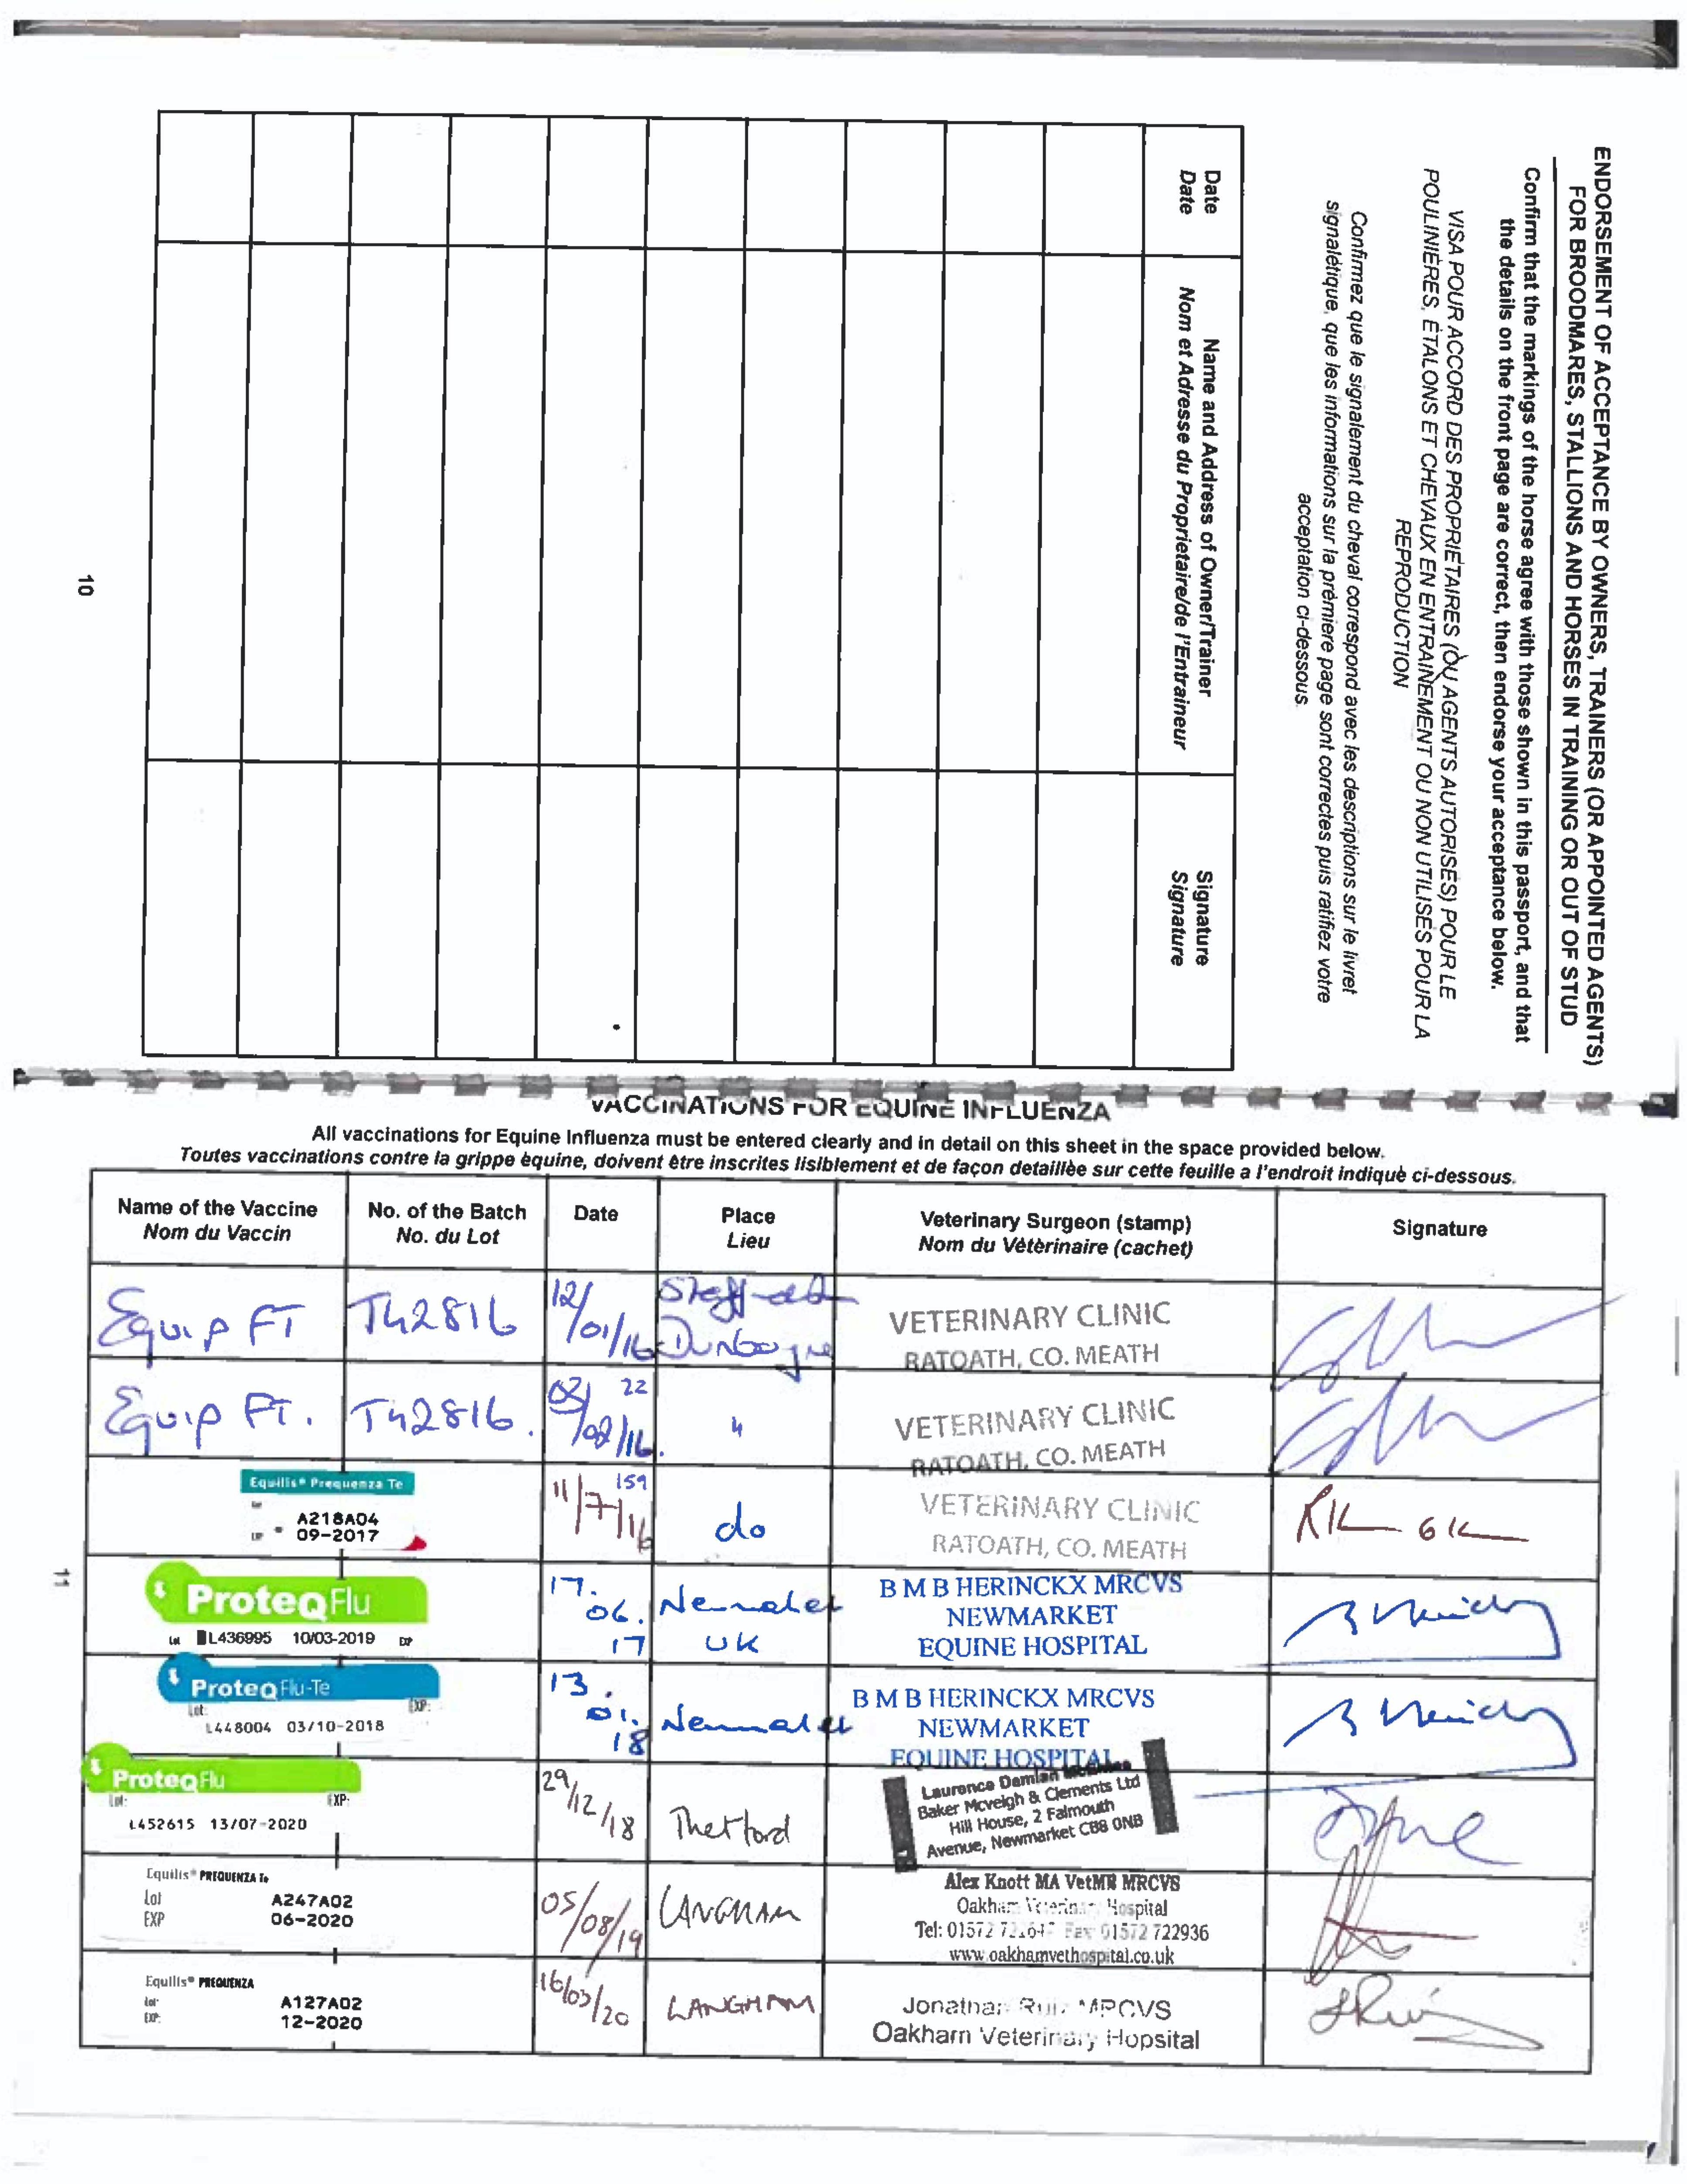 ENDORSEMENT OF ACCEPTANCE BY OWNERS, TRAINERS (OR APPOINTED AGENTS)
FOR BROODMARES, STALLIONS AND HORSES IN TRAINING OR OUT OF STUD
Confirm that the markings of the horse agree with those shown in this passport, and that
the details on the front page are correct, then endorse your acceptance below.
VISA POUR ACCORD DES PROPRIÉTAIRES (OU AGENTS AUTORISÉS) POUR LE
POULINIÈRES, ÉTALONS ET CHEVAUX EN ENTRAINEMENT OU NON UTILISÉS POUR LA
REPRODUCTION
Confirmez que le signalement du cheval correspond avec les descriptions sur le livret
signalétique, que les informations sur la prèmiere page sont correctes puis ratifiez votre
acceptation ci-dessous.
Date
Date
Name and Address of Owner/Trainer
Nom et Adresse du Proprietaire/de l'Entraineur
Signature
Signature
10
VACCINATIONS FOR EQUINE INFLUENZA
All vaccinations for Equine Influenza must be entered clearly and in detail on this sheet in the space provided below.
Toutes vaccinations contre la grippe èquine, doivent être inscrites lisiblement et de façon detaillèe sur cette feuille a l'endroit indiquè ci-dessous.
Name of the Vaccine
Nom du Vaccin
No. of the Batch
No. du Lot
Date
Place
Lieu
Veterinary Surgeon (stamp)
Nom du Vètèrinaire (cachet)
Signature
Equip FT T42816 12/01/16
VETERINARY CLINIC
RATOATH, CO. MEATH
Equip FT. T42816. 22 /02/16. "
VETERINARY CLINIC
RATOATH, CO. MEATH
Equilis® Prequenza Te
A218A04
09-2017
11/7/16 159
do
VETERINARY CLINIC
RATOATH, CO. MEATH
ProteqFlu
Lot L436995 10/03-2019 EXP
17.
06.
17
UK
B M B HERINCKX MRCVS
NEWMARKET
EQUINE HOSPITAL
ProteqFlu-Te
Lot: EXP:
L448004 03/10-2018
13.
01.
18
B M B HERINCKX MRCVS
NEWMARKET
EQUINE HOSPITAL
ProteqFlu
Lot: EXP:
L452615 13/07-2020
29/12/18
Thetford
Laurence Damian
Baker Mcveigh & Clements Ltd
Hill House, 2 Falmouth
Avenue, Newmarket CB8 0NB
Equilis® PREQUENZA Te
Lot A247A02
EXP 06-2020
05/08/19
LANGHAM
Alex Knott MA VetMB MRCVS
Oakham Veterinary Hospital
Tel: 01572 Fax 01572 722936
www.oakhamvethospital.co.uk
Equilis® PREQUENZA
Lot: A127A02
EXP: 12-2020
16/03/20
LANGHAM
Jonathan Ruiz MRCVS
Oakham Veterinary Hopsital
11